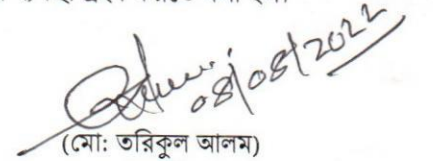 08/08/2022
(মো: তরিকুল আলম)